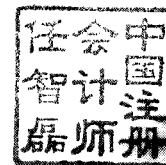 中国注册
会计师
任智磊